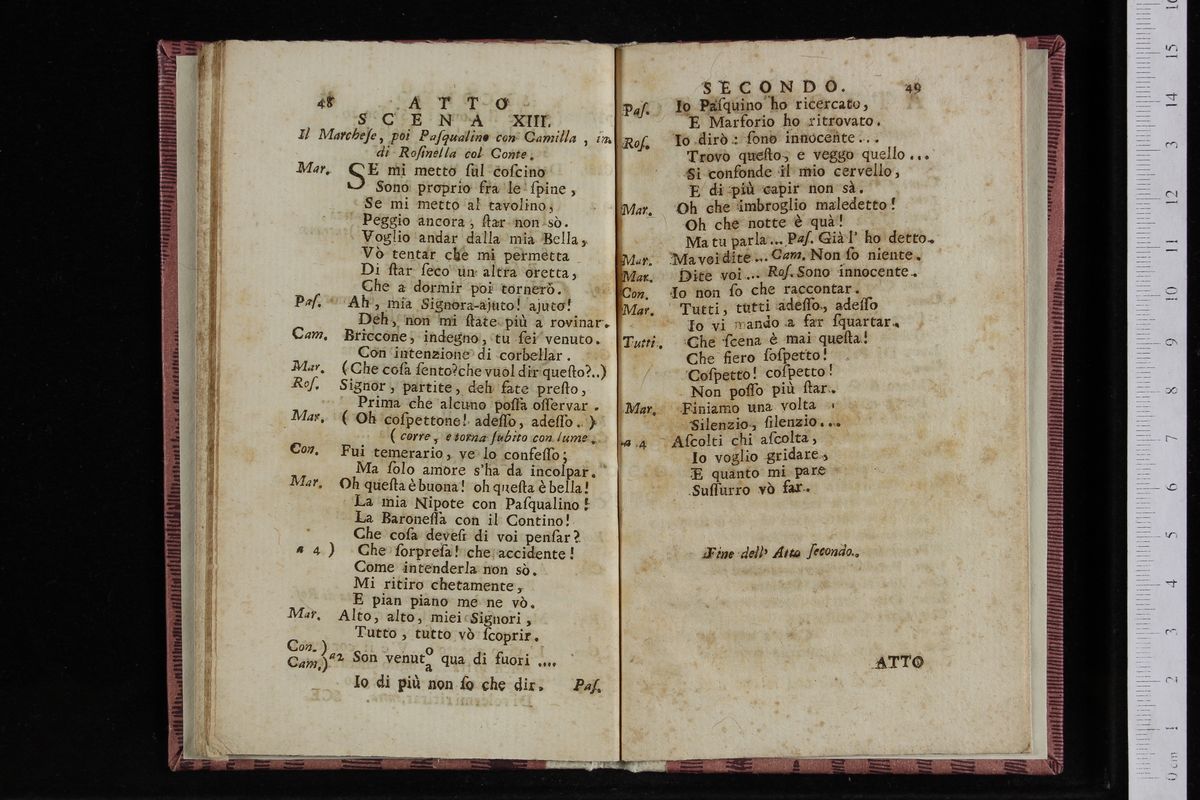 48 ATTO
SCENA XIII.
Il Marcheſe, poi Paſqualino con Camilla, in-
di Roſinella col Conte.
Mar. SE mi metto ſul coſcino
Sono proprio fra le ſpine,
Se mi metto al tavolino,
Peggio ancora, ſtar non sò.
Voglio andar dalla mia Bella,
Vò tentar che mi permetta
Di ſtar ſeco un altra oretta,
Che a dormir poi tornerò.
Paſ. Ah, mia Signora-ajuto! ajuto!
Deh, non mi ſtate più a rovinar.
Cam. Briccone, indegno, tu ſei venuto.
Con intenzione di corbellar.
Mar. (Che coſa ſento? che vuol dir queſto?..)
Roſ. Signor, partite, deh fate preſto,
Prima che alcuno poſſa oſſervar.
Mar. (Oh coſpettone! adeſſo, adeſſo..)
(corre, e torna ſubito con lume.
Con. Fui temerario, ve lo confeſſo;
Ma ſolo amore s'ha da incolpar.
Mar. Oh queſta è buona! oh queſta è bella!
La mia Nipote con Paſqualino!
La Baroneſſa con il Contino!
Che coſa deveſi di voi penſar?
a 4) Che ſorpreſa! che accidente!
Come intenderla non sò.
Mi ritiro chetamente,
E pian piano me ne vò.
Mar. Alto, alto, miei Signori,
Tutto, tutto vò ſcoprir.
Con.)
Cam.) a2 Son venuto/a qua di fuori ....
Io di più non ſo che dir. Paſ.
SECONDO. 49
Paſ. Io Paſquino ho ricercato,
E Marforio ho ritrovato.
Roſ. Io dirò: ſono innocente...
Trovo queſto, e veggo quello...
Si confonde il mio cervello,
E di più capir non sà.
Mar. Oh che imbroglio maledetto!
Oh che notte è quà!
Ma tu parla... Paſ. Già l' ho detto.
Mar. Ma voi dite... Cam. Non ſo niente.
Mar. Dite voi... Roſ. Sono innocente.
Con. Io non ſo che raccontar.
Mar. Tutti, tutti adeſſo, adeſſo
Io vi mando a far ſquartar.
Tutti. Che ſcena è mai queſta!
Che fiero ſoſpetto!
Coſpetto! coſpetto!
Non poſſo più ſtar.
Mar. Finiamo una volta
Silenzio, ſilenzio...
a 4 Aſcolti chi aſcolta,
Io voglio gridare,
E quanto mi pare
Suſſurro vò far.
Fine dell' Atto ſecondo.
ATTO